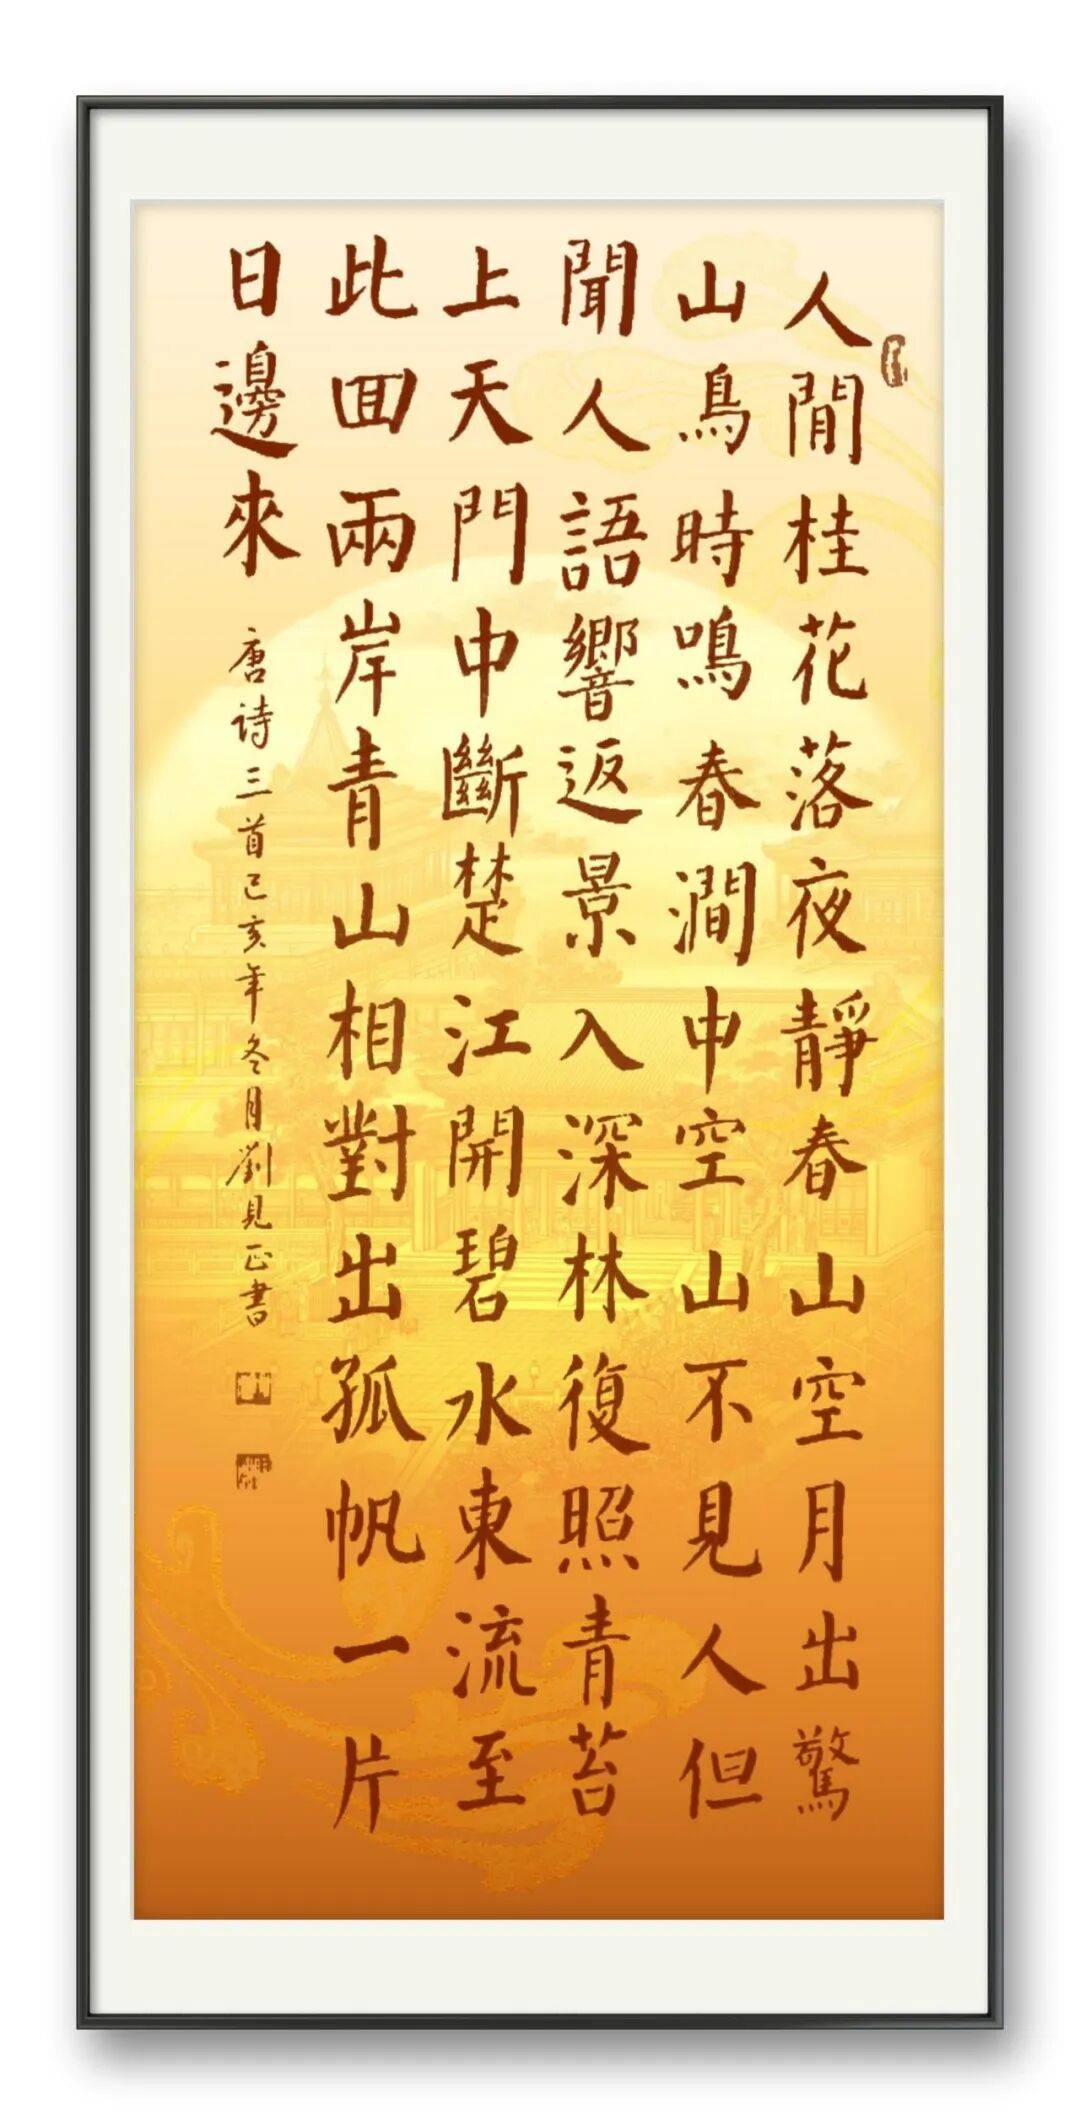 人閒桂花落夜靜春山空月出驚
山鳥時鳴春澗中空山不見人但
聞人語響返景入深林復照青苔
上天門中斷楚江開碧水東流至
此囬兩岸青山相對出孤帆一片
日邊來
唐诗三首己亥年冬月劉見正書